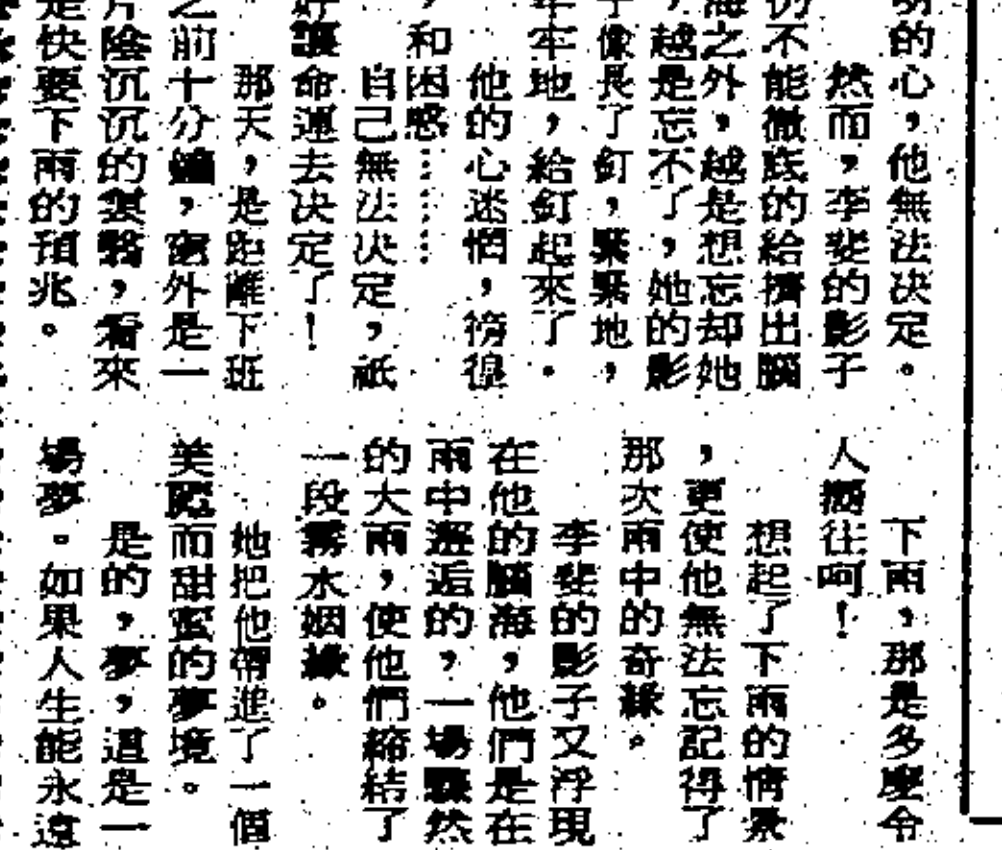 的心，他無法決定。
然而，李斐的影子
仍不能徹底的給擠出腦
海之外，越是想忘却她
，越是忘不了，她的影
子像長了釘，緊緊地，
牢牢地，給釘起來了。
他的心迷惘，徬徨
，和困惑⋯⋯
自己無法決定，祇
好讓命運去決定了！
那天，是距離下班
之前十分鐘，窗外是一
片陰沉沉的雲翳，看來
是快要下雨的預兆。
下雨，那是多麼令
人嚮往呵！
想起了下雨的情景
，更使他無法忘記得了
那次雨中的奇緣。
李斐的影子又浮現
在他的腦海，他們是在
雨中邂逅的，一場驟然
的大雨，使他們締結了
一段霧水姻緣。
她把他帶進了一個
美麗而甜蜜的夢境。
是的，夢，這是一
場夢。如果人生能永遠